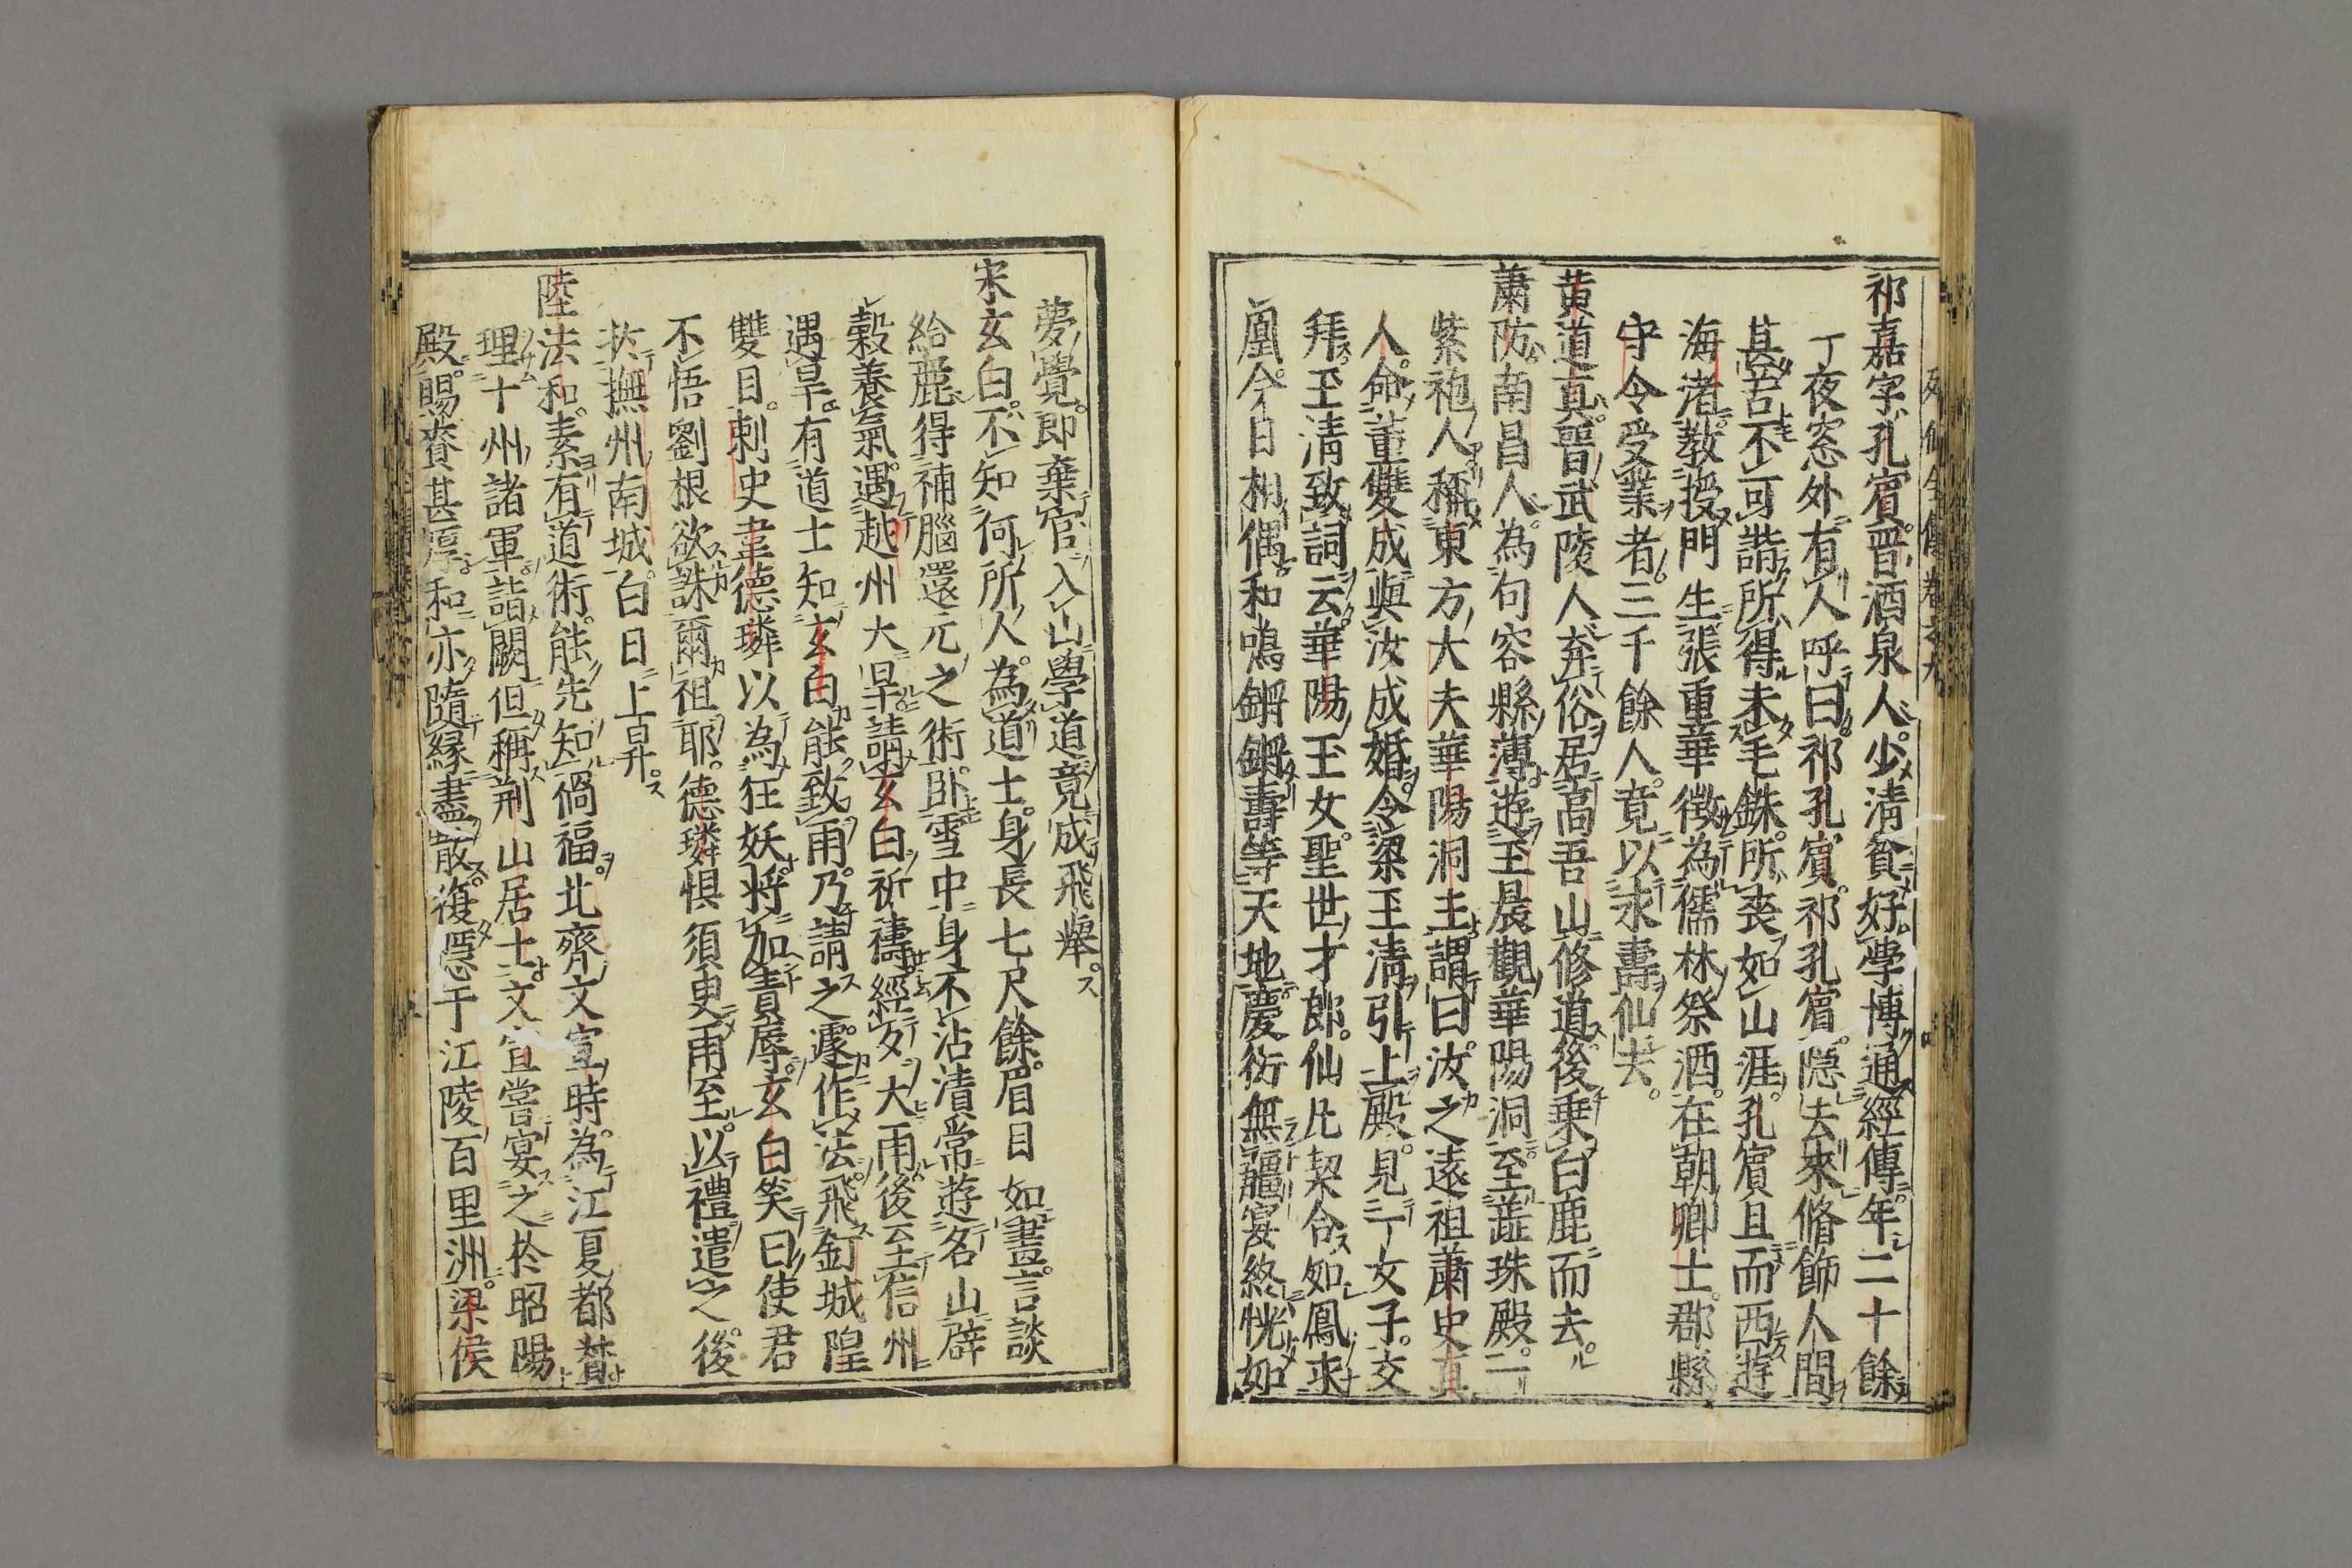 祁嘉字孔賓。晉酒泉人。少清貧好學博通經傳。年二十餘
一夜窓外有人呼曰祁孔賓。祁孔賓。隱去來脩飾人間
甚苦不可諧所得未毛銖。所喪如山涯。孔賓且而西遊
海渚教授門生張重華徵為儒林祭酒。在朝卿士。郡縣
守令受業者。三千餘人。竟以永壽仙去。
黄道真。晉武陵人弃俗居高吾山修道後乗白鹿而去。
蕭防。南昌人。為句容縣薄。遊玉晨觀華陽洞至蕋珠殿。二
紫袍人稱東方大夫華陽洞主。謂曰汝之遠祖蕭史真
人。命董雙成與汝成婚。令梁玉清引上殿。見一女子。交
拜。玉清致詞云。華陽玉女。聖世才郎。仙凡契合如鳳求
凰。今日相偶。和鳴鏘鏘壽等天地。慶衍無疆宴終恍如
夢覺。即棄官入山學道竟成飛舉。
宋玄白。不知何所人。為道士。身長七尺餘。眉目如畫。言談
給麗得補腦還元之術。卧雪中身不沾漬常遊名山辟
榖養氣。遇越州大旱。請玄白祈禱。經夕大雨後至信州
遇旱。有道士知玄白能致雨。乃請之。遽作法。飛釘城隍
雙目。刺史韋德璘以為狂妖。將加責辱。玄白笑曰使君
不悟劉根欲誅爾祖耶。德璘惧須臾雨至。以禮遣之。後
扵撫州南城。白日上昇。
陸法和。素有道術。能先知禍福。北齊文宣時。為江夏都督
理十州諸軍。詣闕但稱荆山居士。文宣嘗宴之扵昭陽
殿。賜賚甚厚。和亦隨縁盡散。復隱于江陵百里洲。梁侯